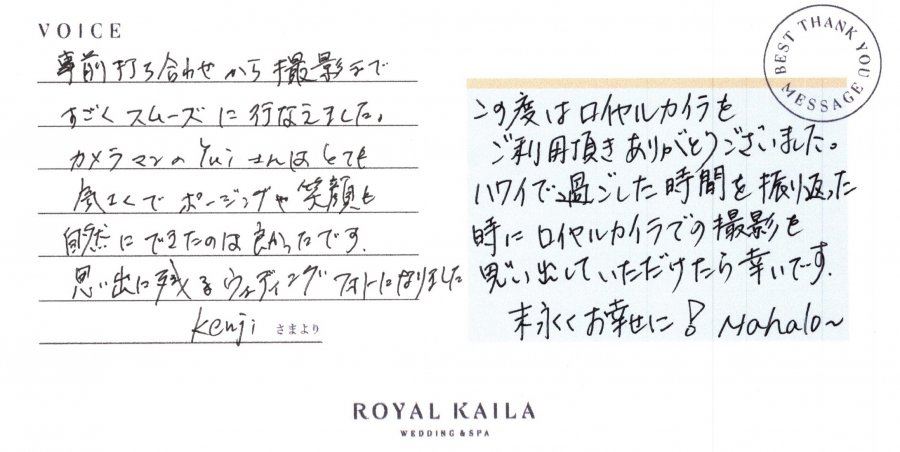 VOICE
事前打ち合わせから撮影まで
すごくスムーズに行なえました。
カメラマンのYuiさんはとても
気さくでポージングや笑顔も
自然にできたのは良かったです.
思い出に残るウェディングフォトになりました
Kenji さまより
BEST THANK YOU MESSAGE
この度はロイヤルカイラを
ご利用頂きありがとうございました。
ハワイで過ごした時間を振り返った
時にロイヤルカイラでの撮影を
思い出していただけたら幸いです.
末永くお幸せに! Mahalo~
ROYAL KAILA
WEDDING & SPA